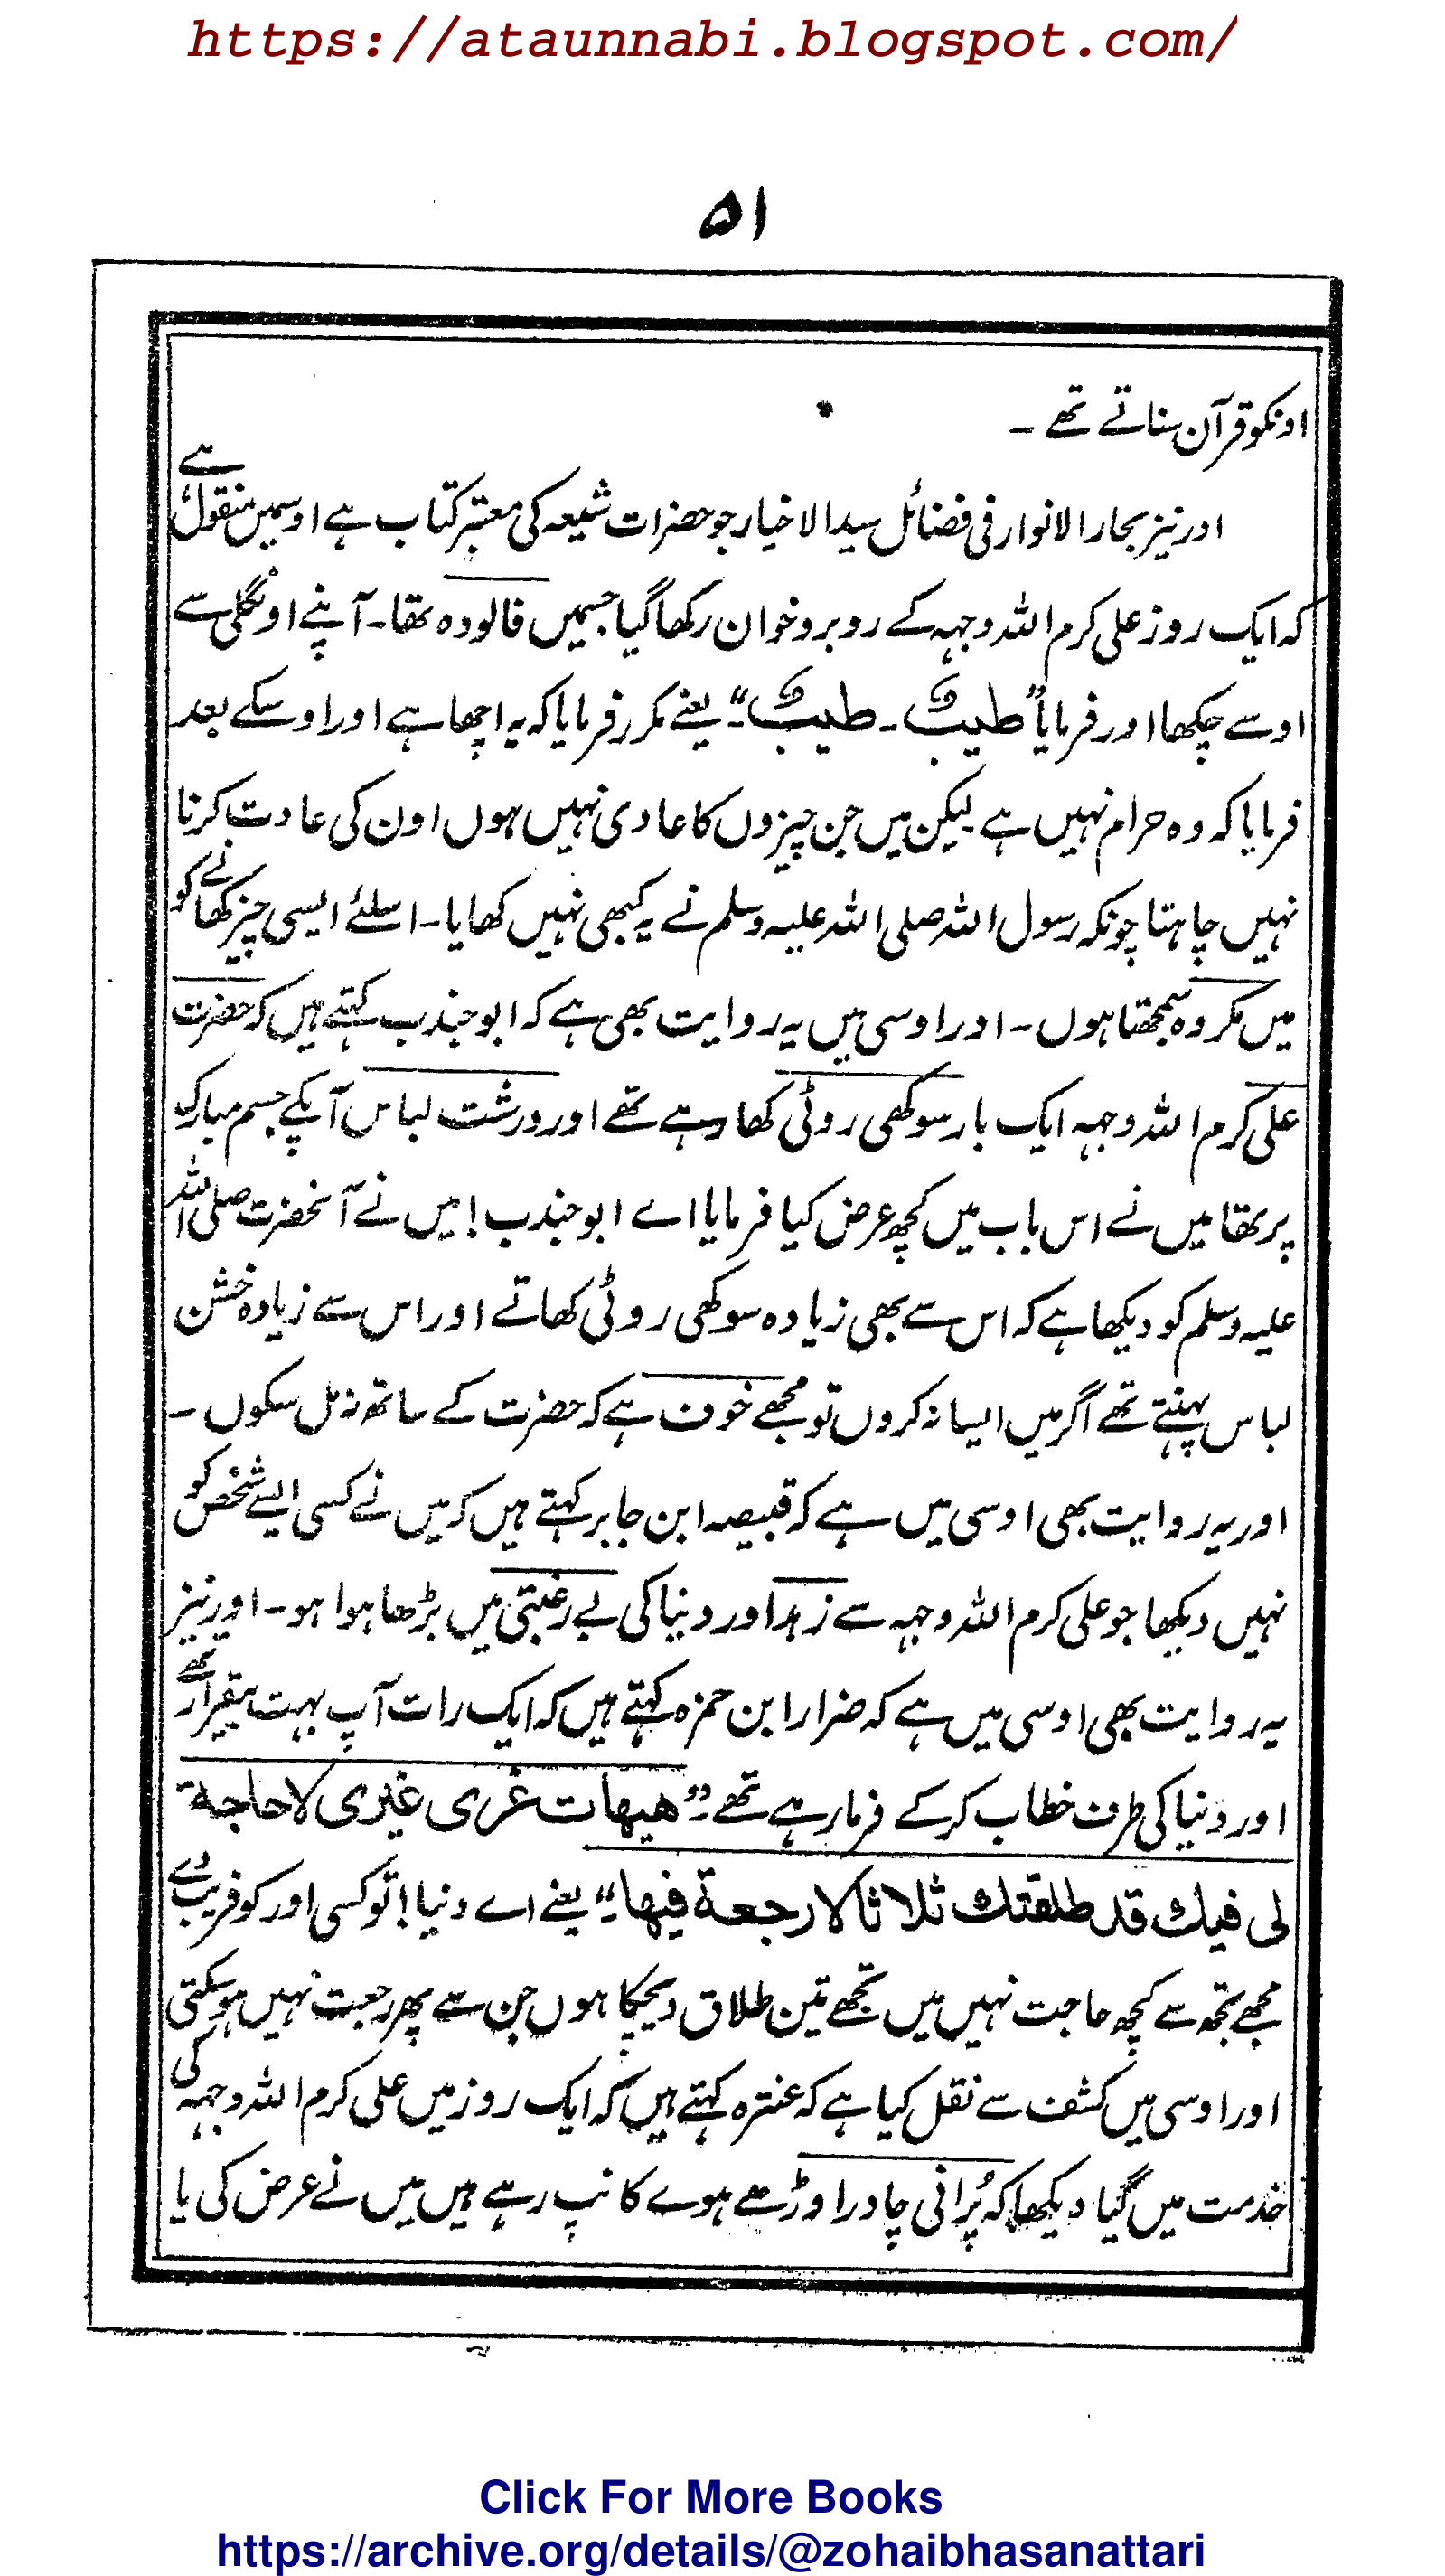 https://ataunnabi.blogspot.com/
۵۱
اونکو قرآن سناتے تھے ۔
اور نیز بحار الانوار فی فضائل سید الاخیار جو حضرات شیعہ کی معتبر کتاب ہے اوسمیں منقول ہے
کہ ایک روز علی کرم اللہ وجہہ کے روبرو خوان رکھا گیا جسمیں فالودہ تھا۔ آپنے اونگلی سے
اوسے چکھا اور فرمایا "طیبٌ ۔ طیبٌ"۔ یعنے مکرر فرمایا کہ یہ اچھا ہے اور اوسکے بعد
فرمایا کہ وہ حرام نہیں ہے لیکن میں جن چیزوں کا عادی نہیں ہوں اون کی عادت کرنا
نہیں چاہتا چونکہ رسول اللہ صلی اللہ علیہ وسلم نے یہ کبھی نہیں کھایا۔ اسلئے ایسی چیز کھانے کو
میں مکروہ سمجھتا ہوں ۔ اور اوسی میں یہ روایت بھی ہے کہ ابو جندب کہتے ہیں کہ حضرت
علی کرم اللہ وجہہ ایک بار سوکھی روٹی کھا رہے تھے اور درشت لباس آپکے جسم مبارک
پر تھا میں نے اس باب میں کچھ عرض کیا فرمایا اے ابو جندب ! میں نے آنحضرت صلی اللہ
علیہ وسلم کو دیکھا ہے کہ اس سے بھی زیادہ سوکھی روٹی کھاتے اور اس سے زیادہ خشن
لباس پہنتے تھے اگر میں ایسا نہ کروں تو مجھے خوف ہے کہ حضرت کے ساتھ نہ مل سکوں ۔
اور یہ روایت بھی اوسی میں ہے کہ قبیصہ ابن جابر کہتے ہیں کہ میں نے کسی ایسے شخص کو
نہیں دیکھا جو علی کرم اللہ وجہہ سے زہد اور دنیا کی بے رغبتی میں بڑھا ہوا ہو ۔ اور نیز
یہ روایت بھی اوسی میں ہے کہ ضرار ابن حمزہ کہتے ہیں کہ ایک رات آپ بہت بیقرار تھے
اور دنیا کی طرف خطاب کر کے فرما رہے تھے ۔ "ھیھات غری غیری لا حاجة
لی فیك قد طلقتك ثلاثا لا رجعة فیھا"۔ یعنے اے دنیا ! تو کسی اور کو فریب دے
مجھے تجھ سے کچھ حاجت نہیں میں تجھے تین طلاق دیچکا ہوں جن سے پھر رجعت نہیں ہو سکتی
اور اوسی میں کشف سے نقل کیا ہے کہ عنترہ کہتے ہیں کہ ایک روز میں علی کرم اللہ وجہہ کی
خدمت میں گیا دیکھا کہ پُرانی چادر اوڑھے ہوے کانپ رہے ہیں میں نے عرض کی یا
Click For More Books
https://archive.org/details/@zohaibhasanattari